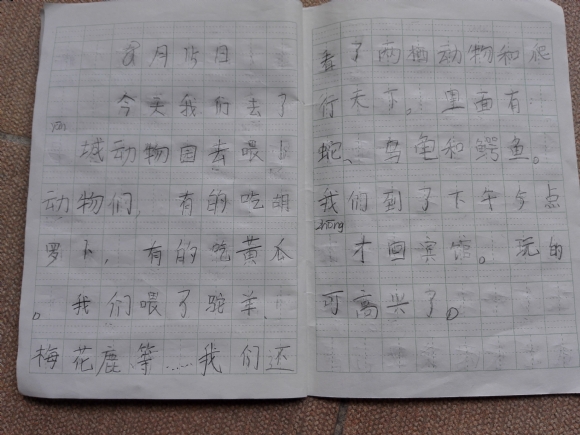 8月15日
今天我们去了
城动物园去喂小
动物们，有的吃胡
罗卜，有的吃黄瓜
。我们喂了驼羊、
梅花鹿等……我们还
看了两栖动物和爬
行天下。里面有
蛇、乌龟和鳄鱼。
我们到了下午5点
zhōng
才回宾馆。玩的
可高兴了。